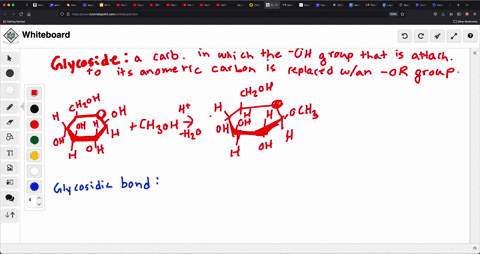 Whiteboard
Glycoside: a carb. in which the -OH group that is attach.
to its anomeric carbon is replaced w/an -OR group.
CH₂OH
H
O
OH
H
OH
H
H
OH
H
OH
+ CH₃OH
H⁺
→
-H₂O
CH₂OH
H
O
H
OCH₃
OH
H
OH
H
H
OH
Glycosidic bond:
4